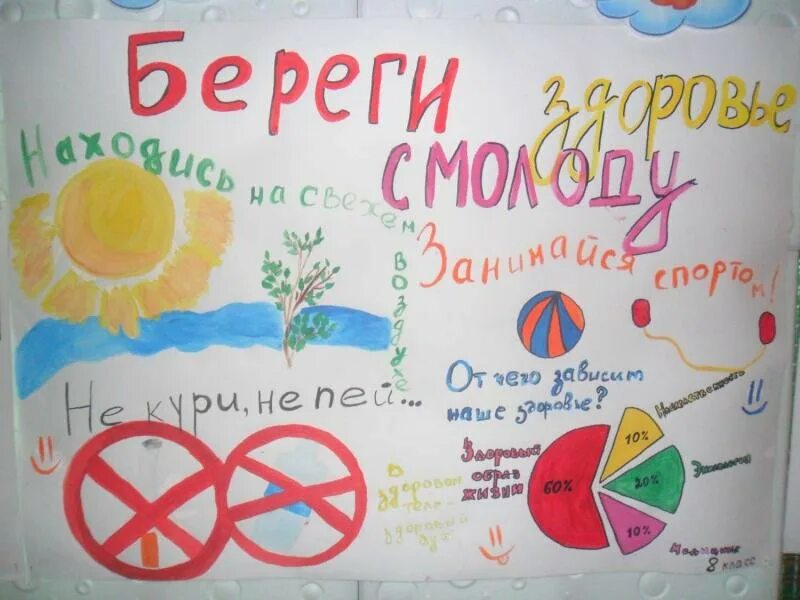 Береги
здоровье
смолоду
Находись на свежем воздухе
Занимайся спортом!
Не кури, не пей...
От чего зависит
наше здоровье?
Здоровый
образ
жизни
60%
10%
Наследственность
20%
Экология
10%
Медицина
В
здоровом
теле-
здоровый
дух
8 класс